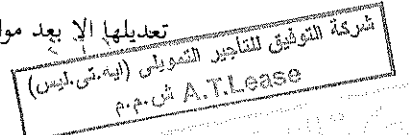 تعديلها إلا بعد موا
شركة التوفيق للتأجير التمويلى (ايه.تى.ليس)
A.T.Lease ش.م.م